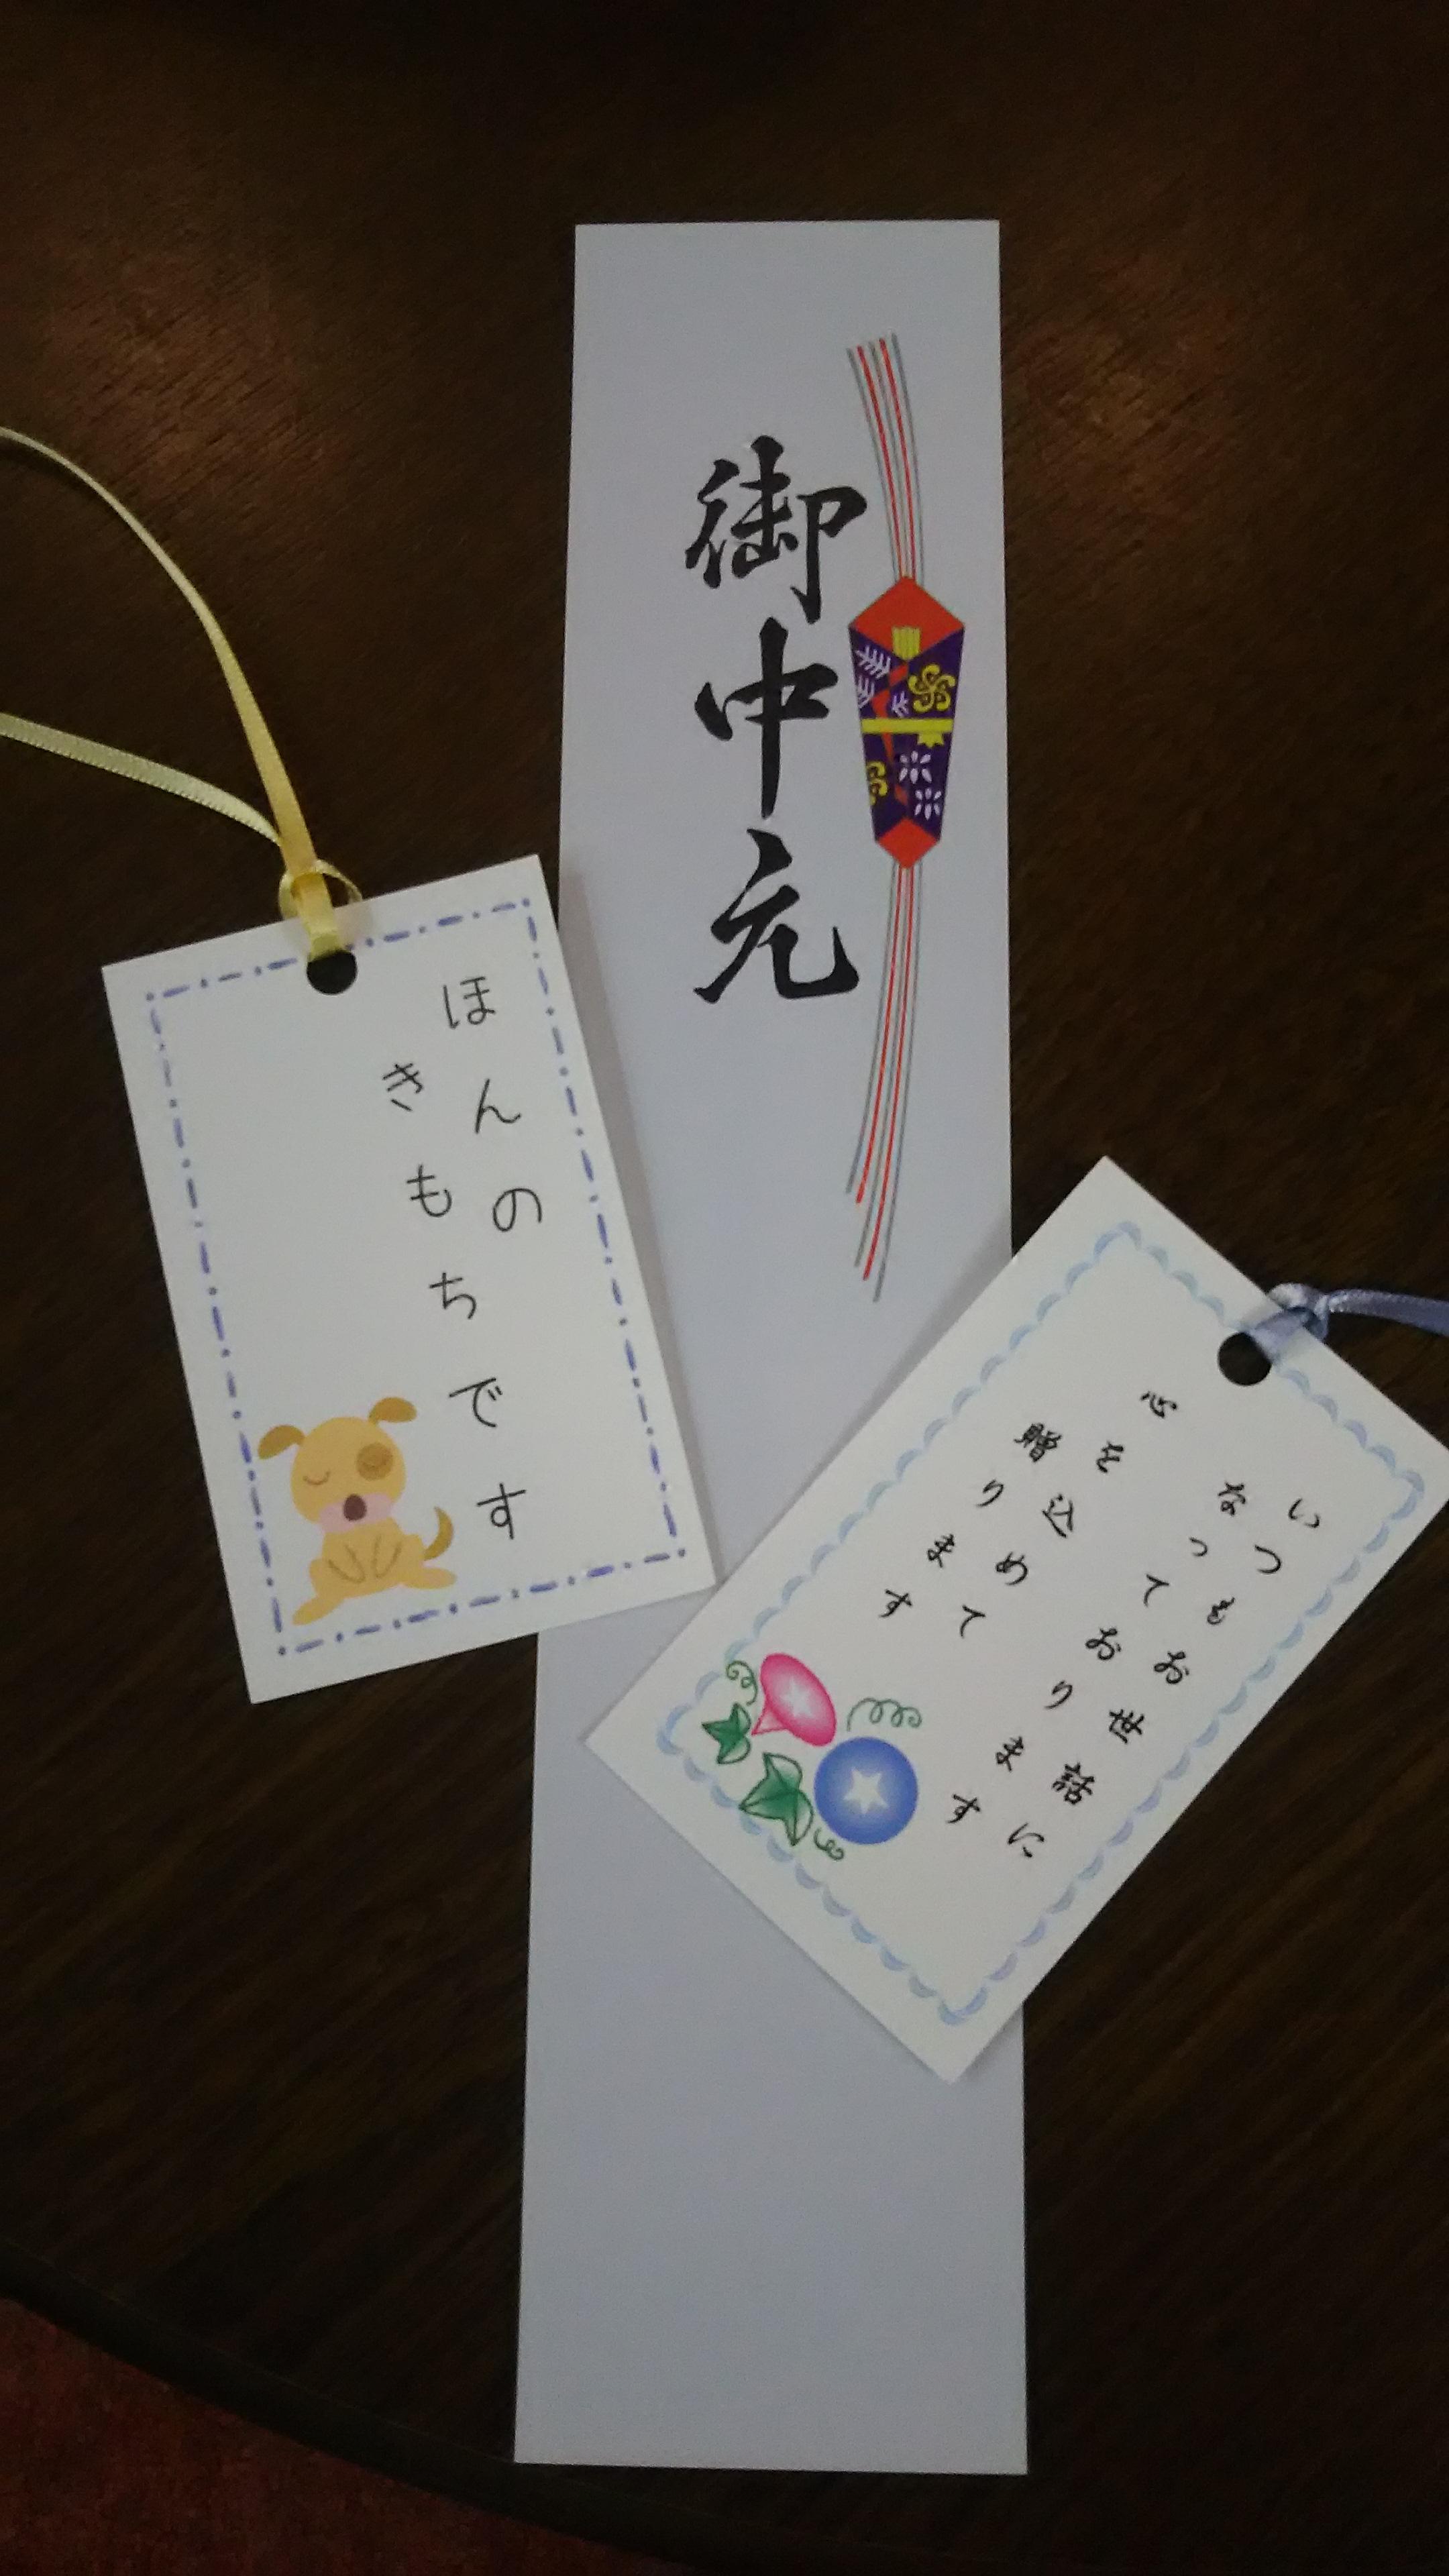 御中元
ほんの
きもちです
いつもお世話に
なっております
心を込めて
贈ります